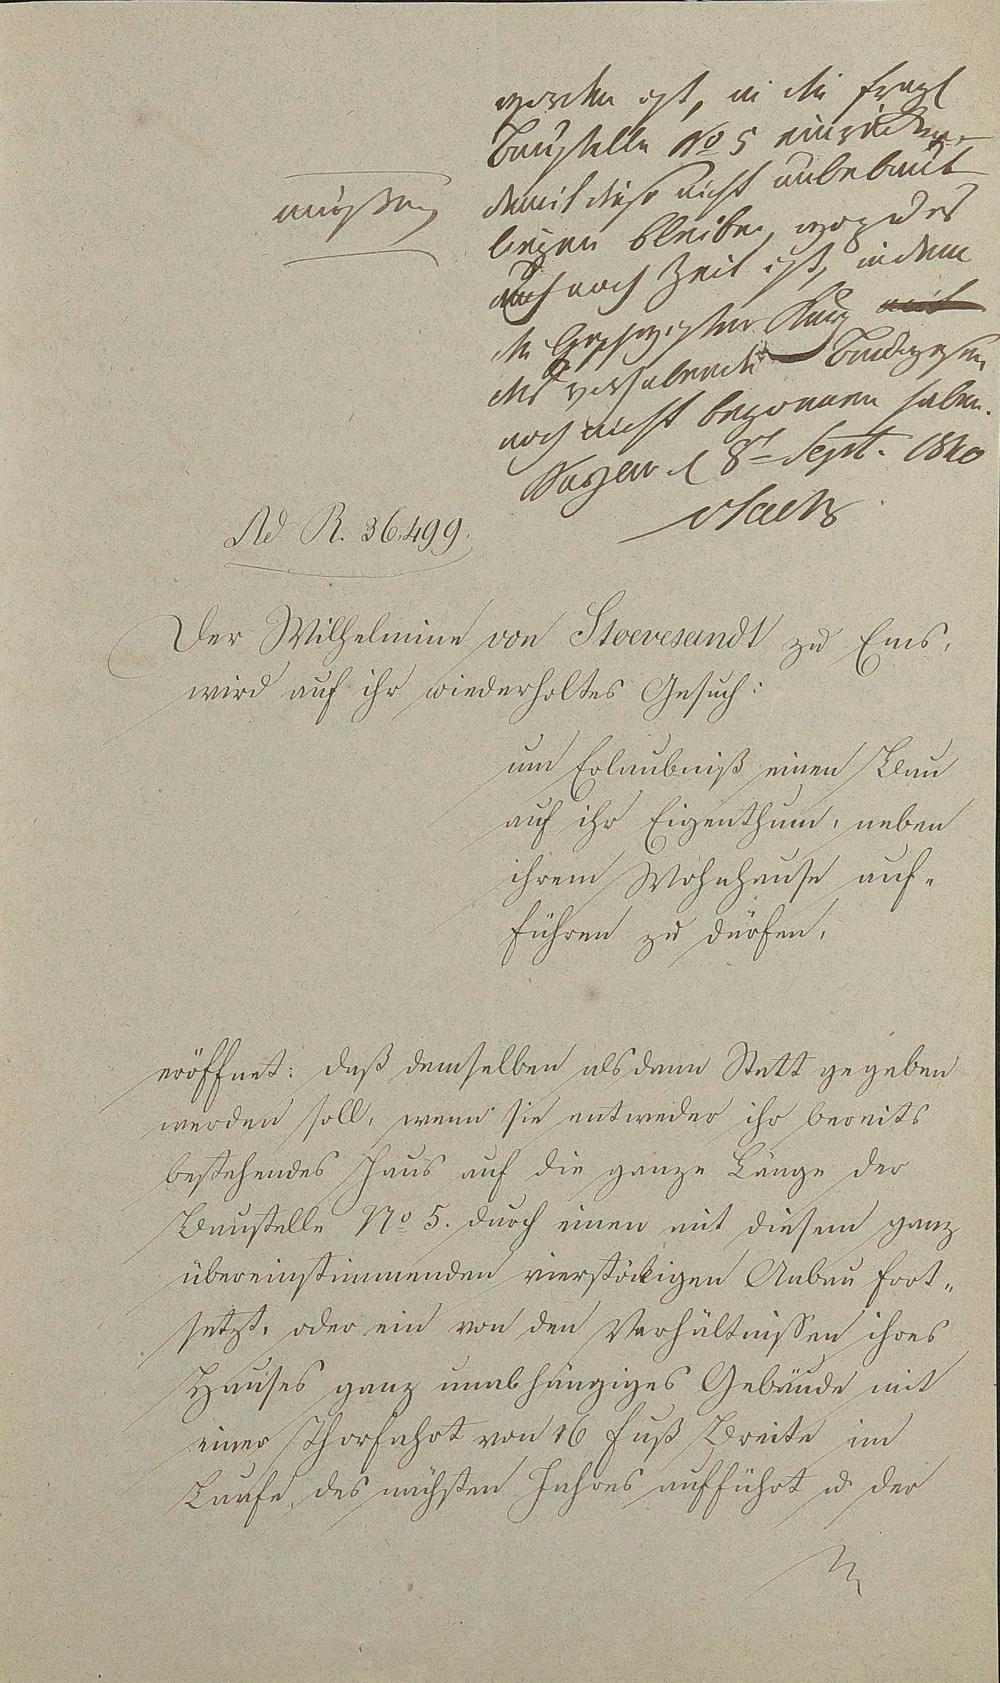 worden ist, in die fragl
Baustelle No 5 einrücken
müssen
damit diese nicht unbebaut
liegen bleibe, wozu es
auch noch Zeit ist, indem
die Geschwister
das vorhabende Bauwesen
noch nicht begonnen haben.
d 8t Sept. 1840
Ad R. 36,499.
Der Wilhelmine von Stoevesandt zu Ems,
wird auf ihr wiederholtes Gesuch:
um Erlaubniß einen Bau
auf ihr Eigenthum, neben
ihrem Wohnhause auf-
führen zu dürfen,
eröffnet: daß demselben alsdann Statt gegeben
werden soll, wenn sie entweder ihr bereits
bestehendes Haus auf die ganze Länge der
Baustelle No 5. durch einen mit diesem ganz
übereinstimmenden vierstöckigen Anbau fort-
setzt, oder ein von den Verhältnissen ihres
Hauses ganz unabhängiges Gebäude mit
einer Thorfahrt von 16 Fuß Breite im
Laufe des nächsten Jahres aufführt u der